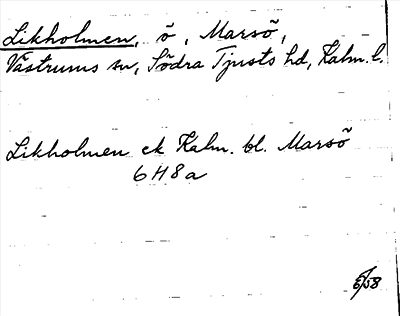 Likholmen, ö, Marsö,
Västrums sn, Södra Tjusts hd, Kalm. l.
Likholmen ek Kalm. bl. Marsö
6H8a
5/58